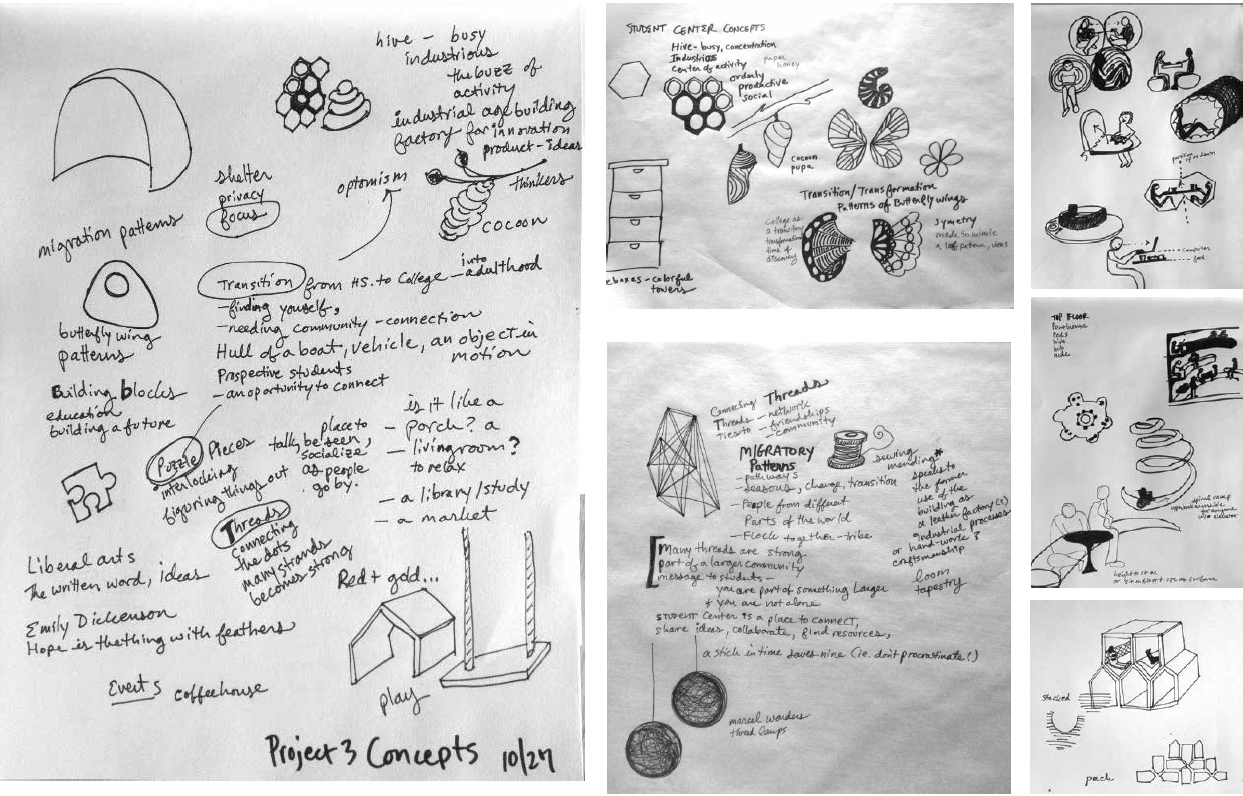 hive - busy
industrious
the buzz of
activity
industrial age building
factory for innovation
product - ideas
thinkers
optomism
shelter
privacy
focus
cocoon
migration patterns
Transition from HS. to College - into adulthood
- finding yourself,
- needing community - connection
Hull of a boat, vehicle, an object in
motion
Prospective students
- an opportunity to connect
butterfly wing
patterns
Building blocks
education
building a future
Puzzle Pieces
interlocking
figuring things out
talk, place to
be seen,
socialize
as people
go by.
is it like a
- porch? a
- livingroom?
to relax
- a library/study
- a market
Threads
Connecting
the dots
many strands
becomes strong
Liberal arts
The written word, ideas
Emily Dickenson
Hope is the thing with feathers
Red + gold...
play
Events coffeehouse
Project 3 Concepts 10/27
STUDENT CENTER CONCEPTS
Hive - busy, concentration
Industrios
Center of activity
orderly
productive
social
paper
honey
cocoon
pupa
Transition/Transformation
Patterns of Butterfly wings
College as
a transitory
transformation
time of
discovery
symetry
made to mimic
a leaf pattern, veins
eboxes - colorful
towers
Connecting Threads
Threads - network
Ties to - friendships
- community
MIGRATORY
Patterns
- pathways
- seasons, change, transition
- People from different
Parts of the world
- Flock together - tribe
sewing
mending*
speaks to
the former
use of the
building as
a leather factory(?)
industrial processes
or hand-work?
craftsmanship
loom
tapestry
Many threads are strong
part of a larger community
message to students -
you are part of something Larger
+ you are not alone
STUDENT Center is a place to connect,
share ideas, collaborate, find resources,
a stich in time saves nine (ie. don't procrastinate!)
marcel wanders
thread lamps
up or down
computer
TOP FLOOR
Penthouse
Pods
hive
hub
node
spiral ramp
stacked
pack